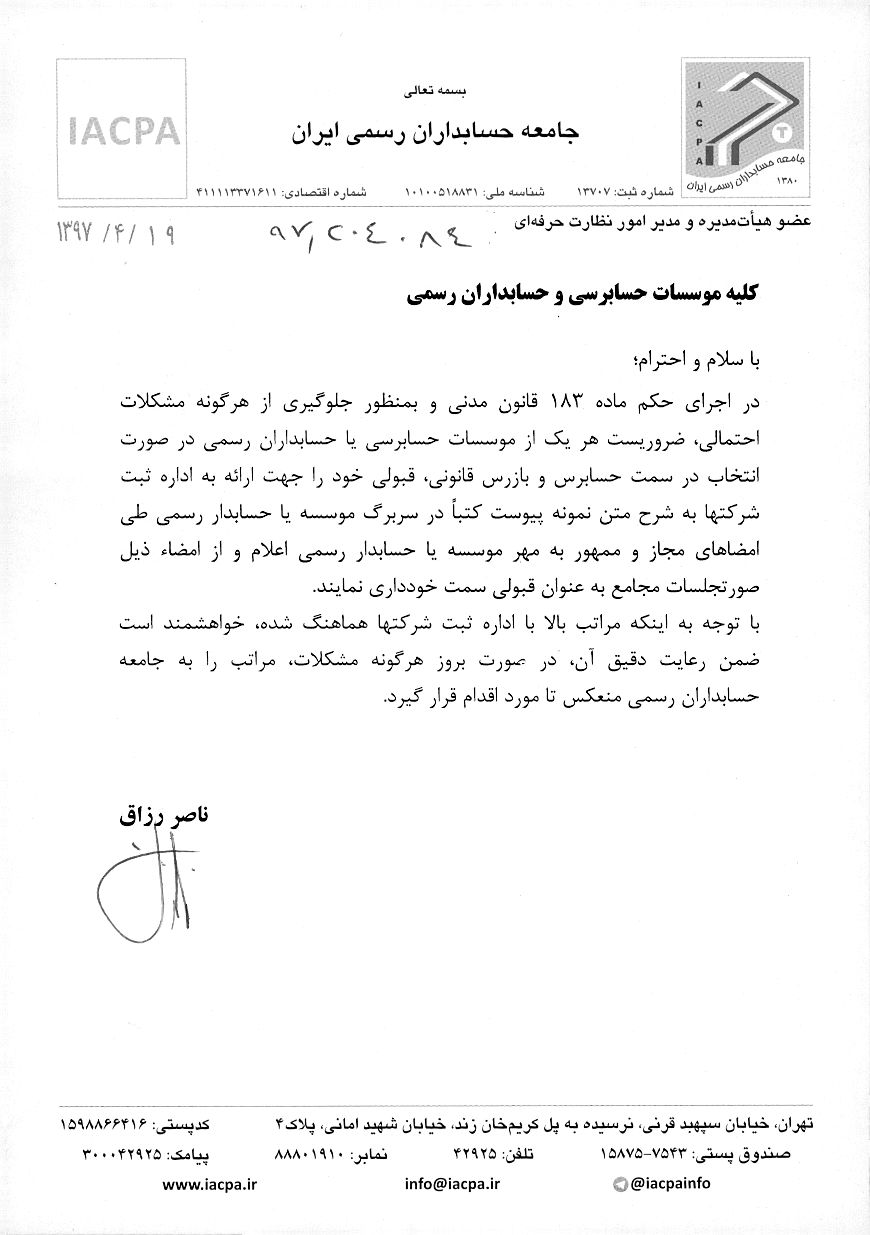 IACPA
بسمه تعالی
جامعه حسابداران رسمی ایران
I A C P A
T
جامعه حسابداران رسمی ایران
۱۳۸۰
شماره ثبت: ۱۳۷۰۷ شناسه ملی: ۱۰۱۰۰۵۱۸۸۳۱ شماره اقتصادی: ۴۱۱۱۱۳۳۷۱۶۱۱
عضو هیأت‌مدیره و مدیر امور نظارت حرفه‌ای
۱۳۹۷/۴/۱۹
کلیه موسسات حسابرسی و حسابداران رسمی
با سلام و احترام؛
در اجرای حکم ماده ۱۸۳ قانون مدنی و بمنظور جلوگیری از هرگونه مشکلات
احتمالی، ضروریست هر یک از موسسات حسابرسی یا حسابداران رسمی در صورت
انتخاب در سمت حسابرس و بازرس قانونی، قبولی خود را جهت ارائه به اداره ثبت
شرکتها به شرح متن نمونه پیوست کتباً در سربرگ موسسه یا حسابدار رسمی طی
امضاهای مجاز و ممهور به مهر موسسه یا حسابدار رسمی اعلام و از امضاء ذیل
صورتجلسات مجامع به عنوان قبولی سمت خودداری نمایند.
با توجه به اینکه مراتب بالا با اداره ثبت شرکتها هماهنگ شده، خواهشمند است
ضمن رعایت دقیق آن، در صورت بروز هرگونه مشکلات، مراتب را به جامعه
حسابداران رسمی منعکس تا مورد اقدام قرار گیرد.
ناصر رزاق
تهران، خیابان سپهبد قرنی، نرسیده به پل کریم‌خان زند، خیابان شهید امانی، پلاک۴ کدپستی: ۱۵۹۸۸۶۶۴۱۶
صندوق پستی: ۷۵۴۳-۱۵۸۷۵ تلفن: ۴۲۹۲۵ نمابر: ۸۸۸۰۱۹۱۰ پیامک: ۳۰۰۰۴۲۹۲۵
www.iacpa.ir info@iacpa.ir @iacpainfo